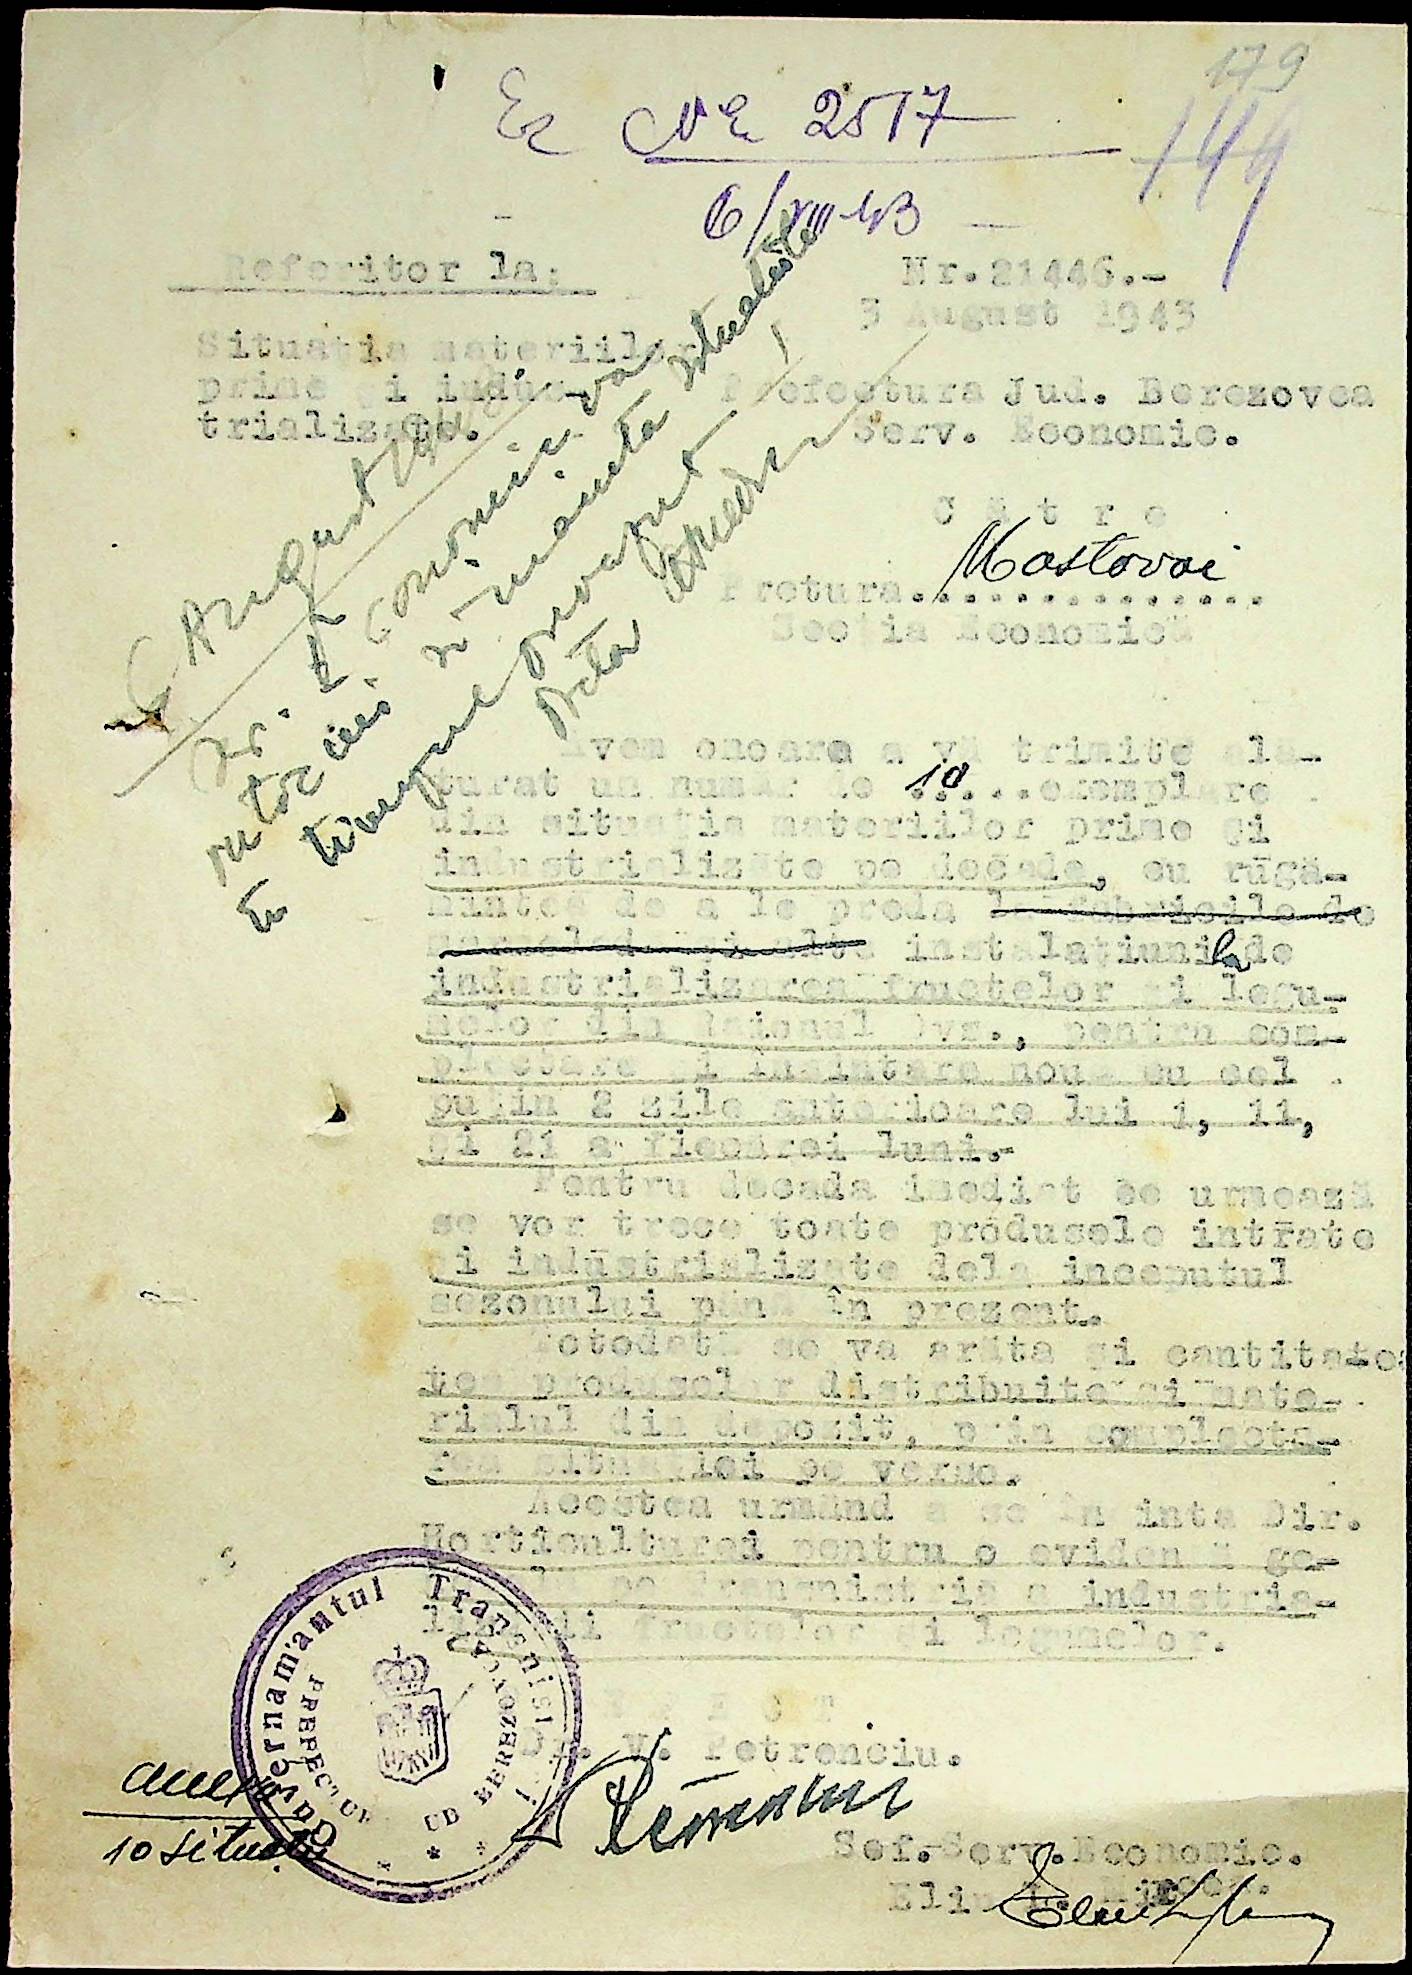 179
144
Ec No 2517
6/VIII 43
Referitor la:
Situația materiilor
prime și indus-
trializate.
Nr. 21446.-
3 August 1943
Prefectura Jud. Berezovca
Serv. Economic.
Către
Pretura. Mostovoi
Secția Economică
6 August
economic va
Avem onoare a vă trimite ală-
turat un număr de 10 ...exemplare
din situația materiilor prime și
industrializate pe decade, cu rugă-
mintea de a le preda l fabricile de
instalațiuni la de
industrializarea fructelor și legu-
melor din Raionul Dvs., pentru com-
plectare și înaintare nouă cu cel
puțin 2 zile anterioare lui 1, 11,
și 21 a fiecărei luni.-
Pentru decada imediat ce urmează
se vor trece toate produsele intrate
și industrializate dela începutul
sezonului până în prezent.
Totodată se va arăta și cantitatea
tea produselor distribuite și mate-
rialul din depozit, prin complecta-
rea situației pe verso.
Acestea urmând a se înainta Dir.
Horticulturei pentru o evidență ge-
pe Transnistria a industria-
lizării fructelor și legumelor.
Guvernamantul Transnistriei
PREFECTURA JUD BEREZOVCA
PREFECT
Dr. V. Petrenciu.
anexa
10 situații
Șef.-Serv. Economic.
Elin